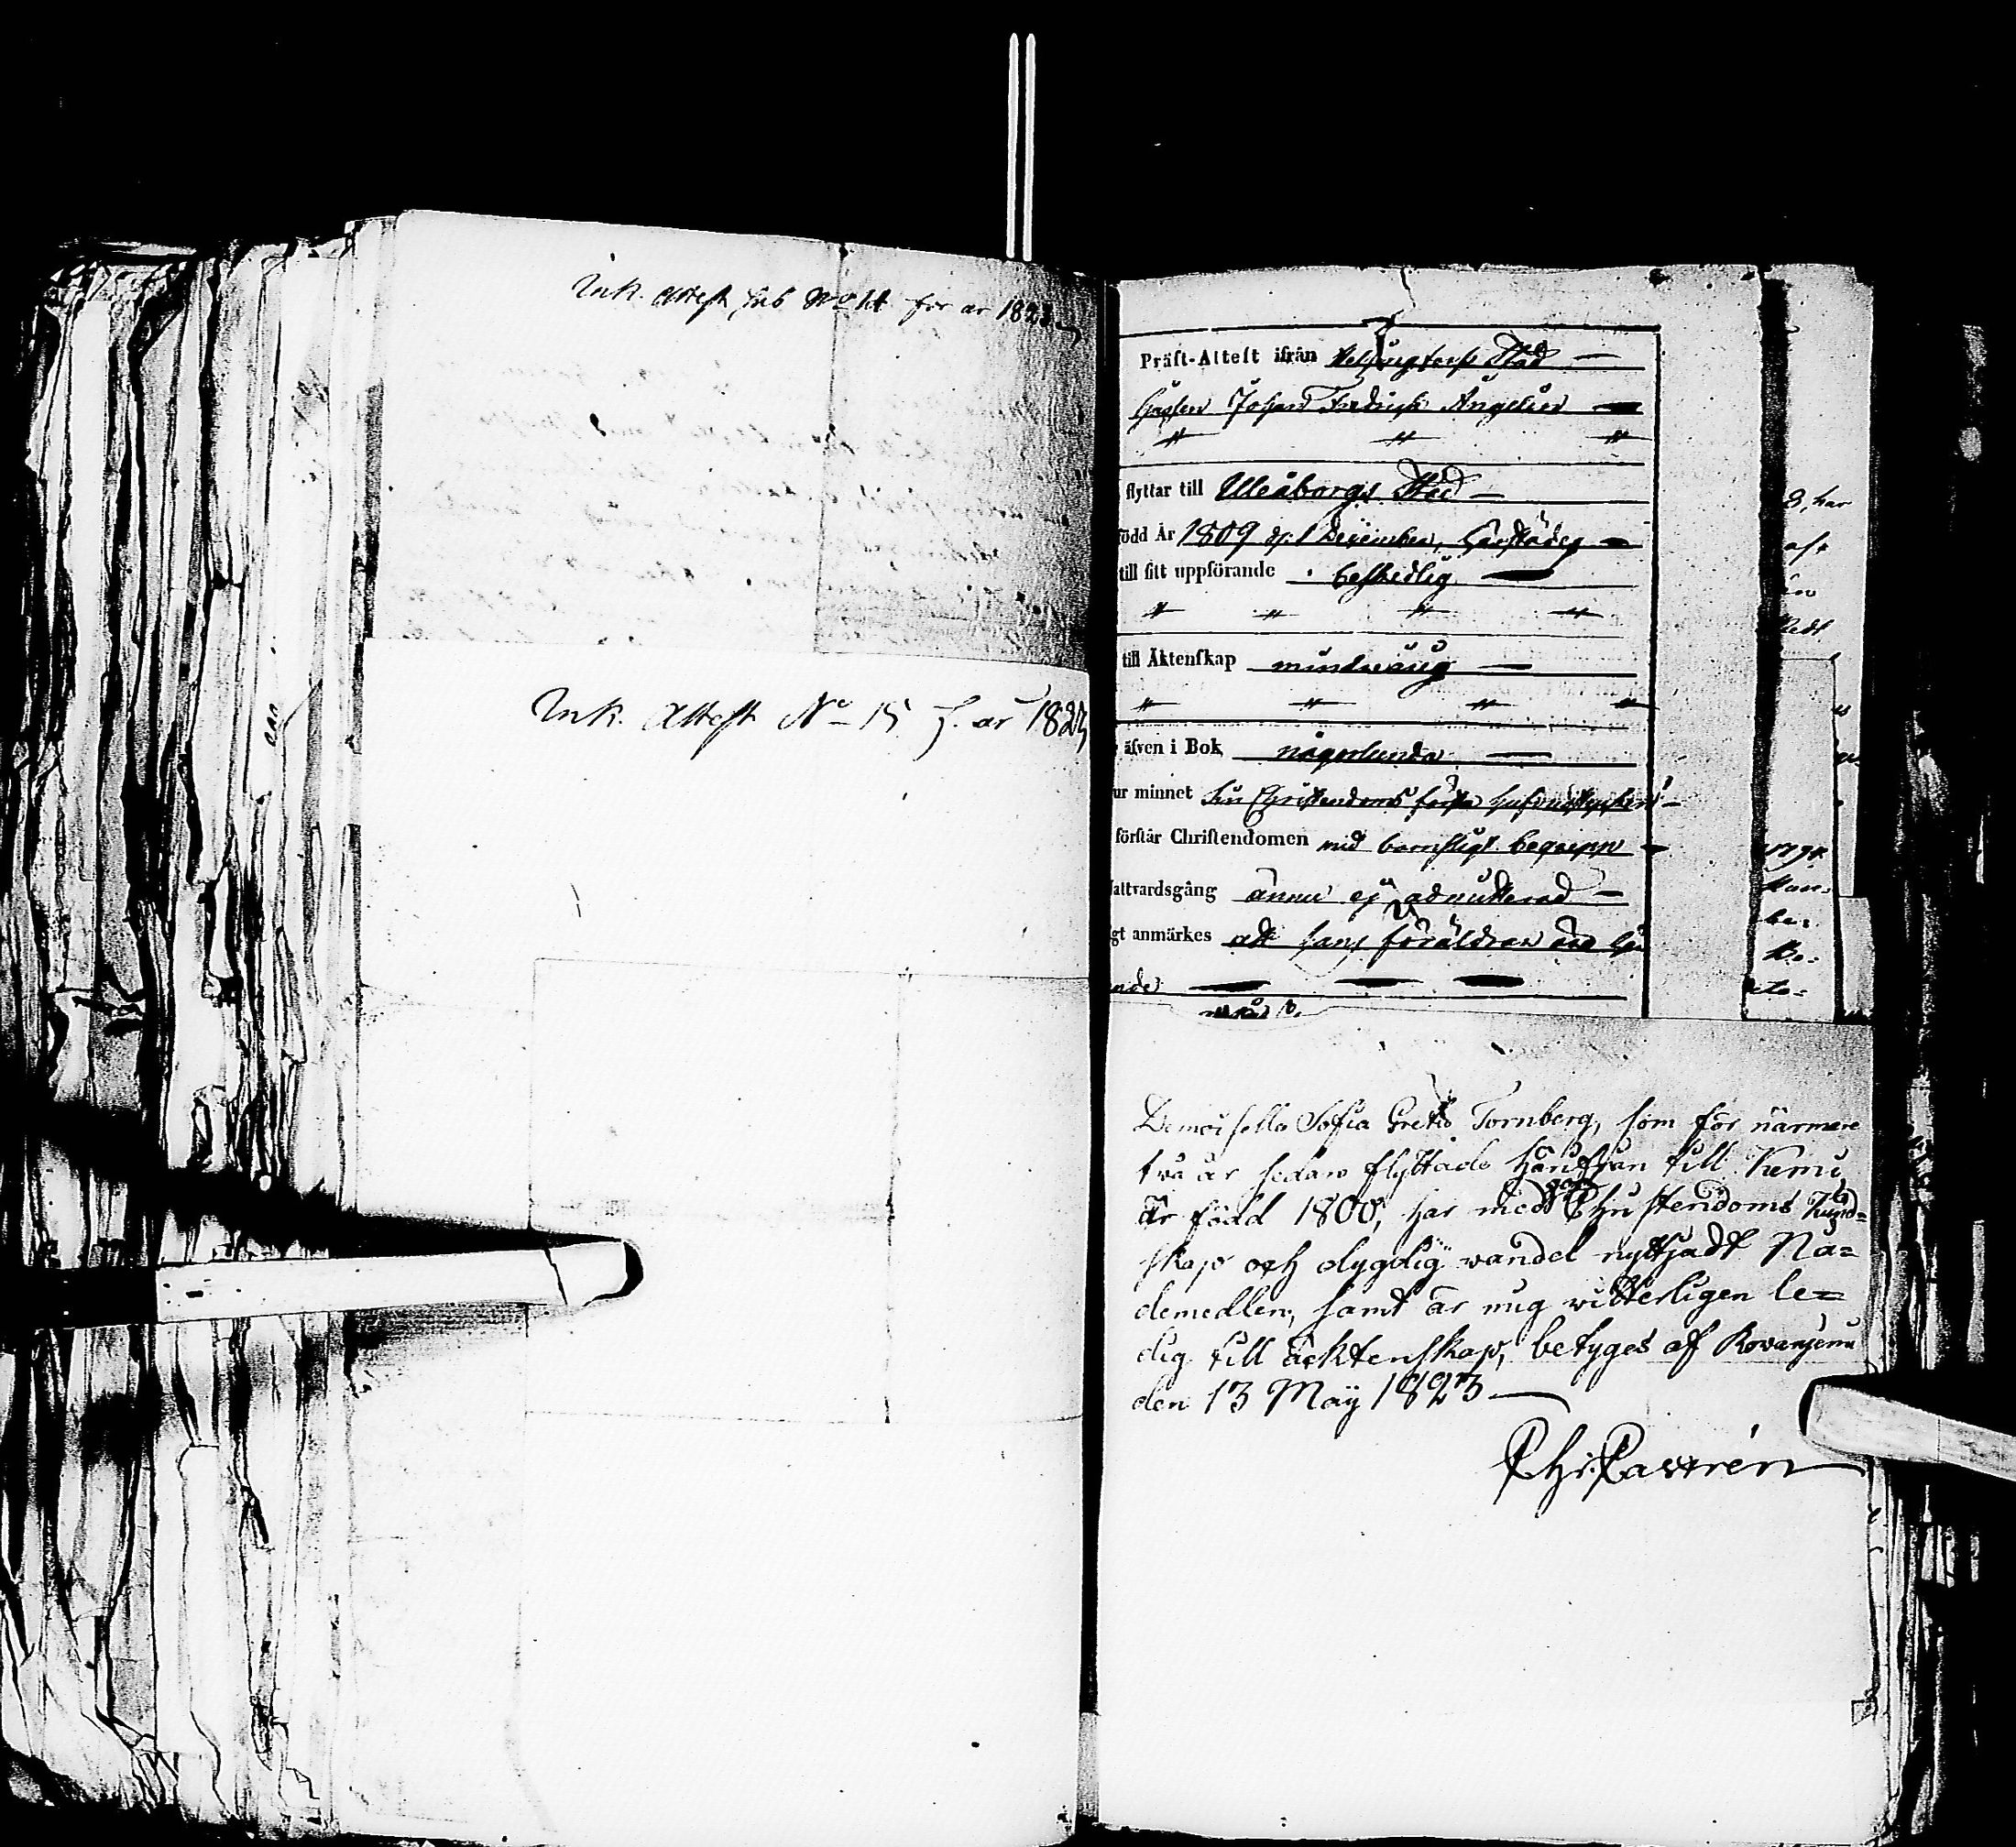 Ink. Attest sub No 14 för år 1823
Ink. Attest No 15 f. år 1823
Präst-Attest ifrån Helsingfors Stad —
Johan Fredrich Angelin —
flyttar till Uleåborgs Stad —
född År 1809 d. 1 December,
till sitt uppförande beskedlig —
till Äktenskap minderårig —
äfven i Bok någorlunda —
ur minnet sin Christendoms första hufvudstycken —
förstår Christendomen med barnsligt begrepp —
Nattvardsgång ännu ej admitterad —
gt anmärkes att hans föräldrar äro
nde
Demoiselle Sofia Greta Tornberg, som för närmare
två år sedan flyttade härifrån till Kemi,
Är född 1800, har med god Christendoms Kund=
skap och dygdig wandel nyttjadt Nå=
demedlen, samt är mig witterligen le=
dig till äcktenskap, betyges af Rovaniemi
den 13 Maÿ 1823 —
Chr. Castrén